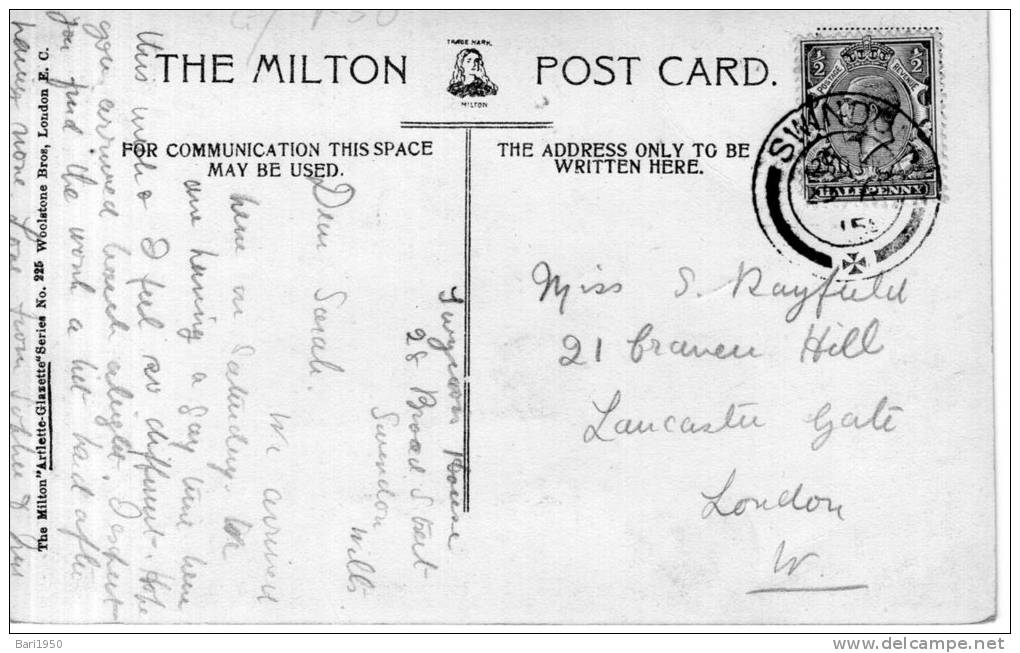 THE MILTON POST CARD.
TRADE MARK.
MILTON
FOR COMMUNICATION THIS SPACE
MAY BE USED.
THE ADDRESS ONLY TO BE
WRITTEN HERE.
1/2 1/2
POSTAGE REVENUE
HALFPENNY
SWINDON
15
Miss S. Rayfield
21 Craven Hill
Lancaster Gate
London
W.
House
28 Broad Street
Swindon
Wilts
Dear Sarah.
We arrived
here on Saturday. We
are having a gay time here
this week & I feel so different. Hope
you arrived back alright. I expect
you find the work a bit hard after
having none. Love from
The Milton "Artlette-Glazette" Series No. 225 Woolstone Bros, London E. C.
Bari1950
www.delcampe.net